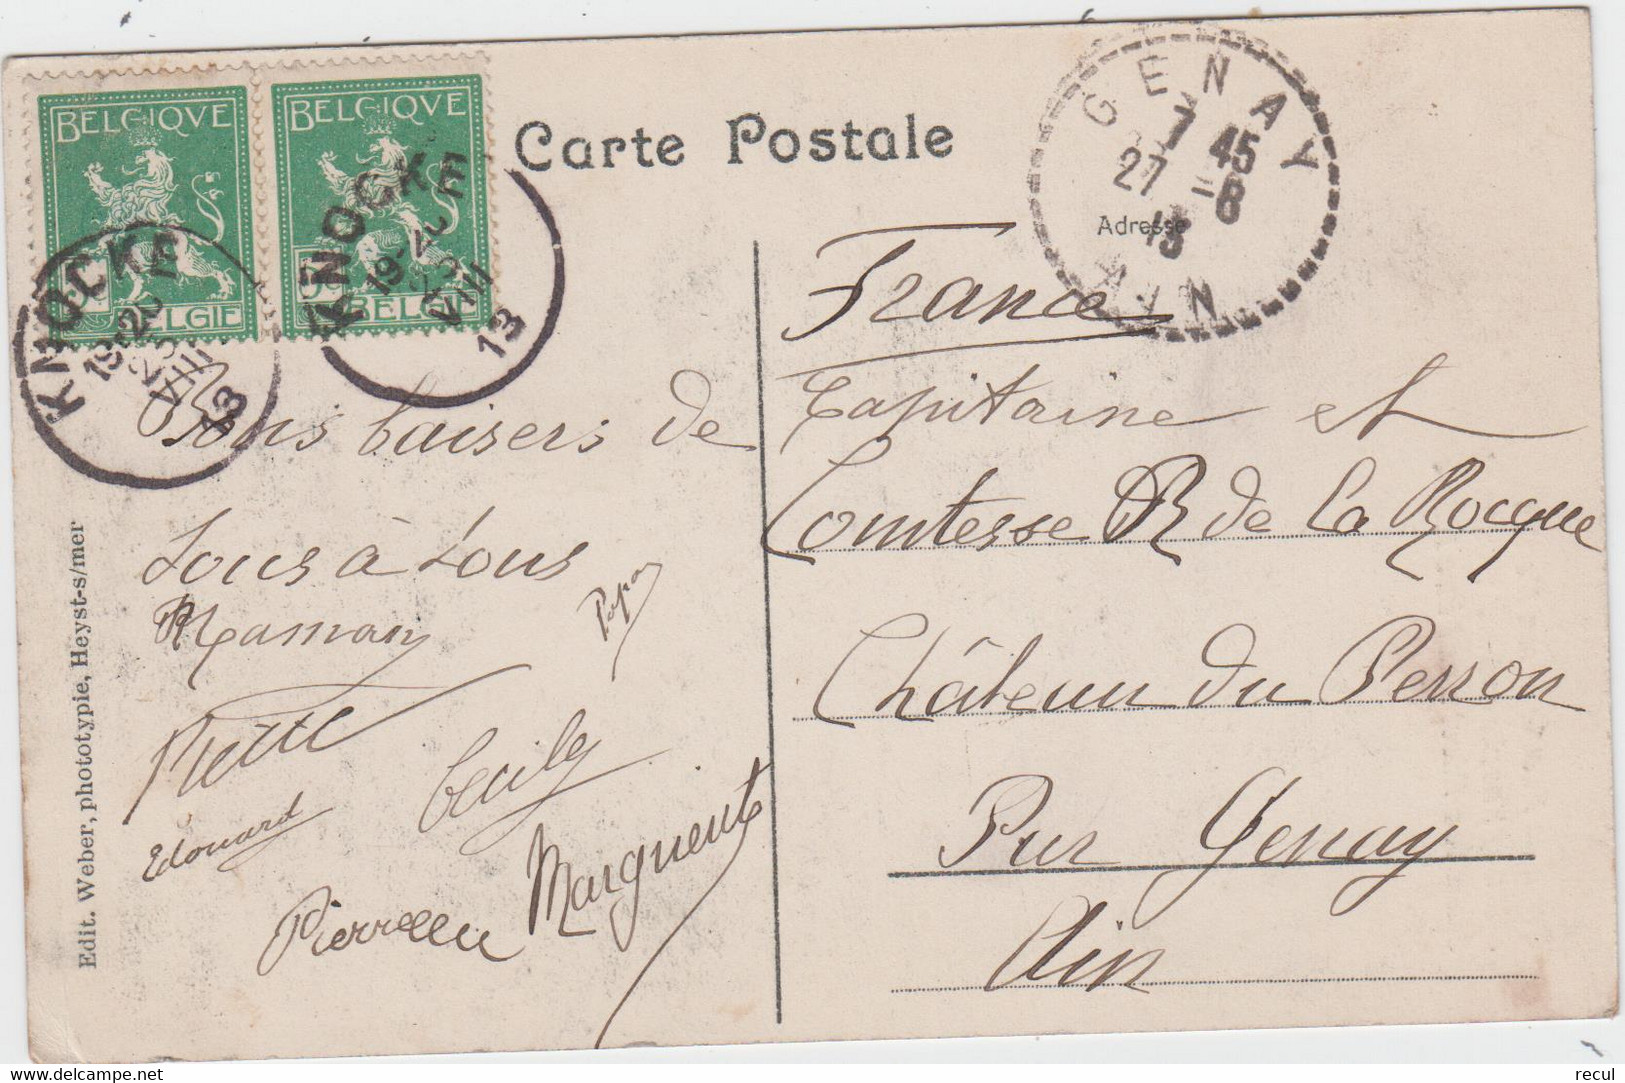 Carte Postale
BELGIQVE
BELGIE
5
BELGIQVE
BELGIE
KNOCKE
19-20
25
VIII
13
KNOCKE
19-20
25
VIII
13
GENAY
7 45
27 -8
13
AIN
Adresse
Bons baisers de
tous à tous
Maman
Papa
Cécily
Edouard
Marguerite
Edit. Weber, phototypie, Heyst-s/mer
France
Capitaine et
Comtesse R de La Rocque
Château du Perron
Par Genay
Ain
recul
www.delcampe.net